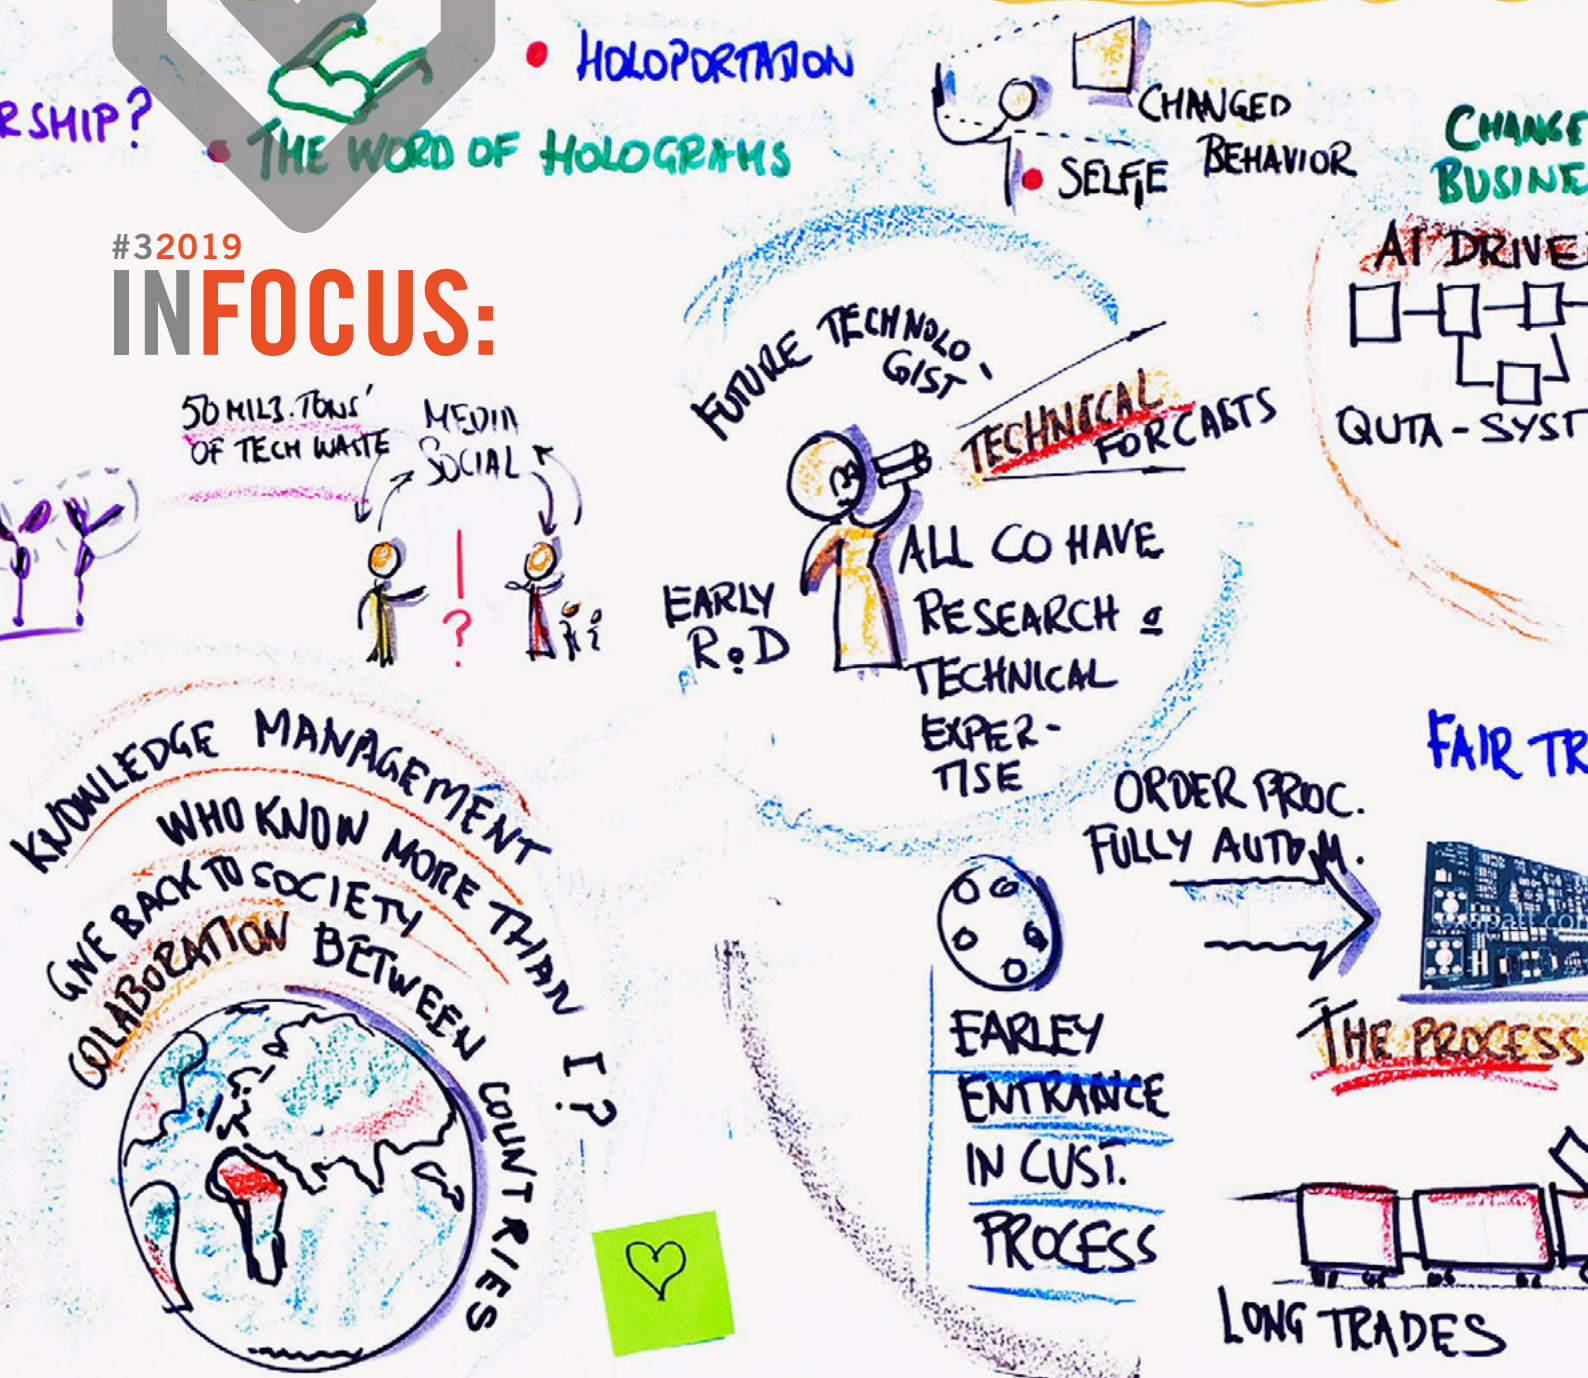 RSHIP?
HOLOPORTATION
THE WORD OF HOLOGRAMS
CHANGED
BEHAVIOR
SELFIE
CHANGE
BUSINE
#32019
INFOCUS:
AI DRIVE
QUTA-SYST
50 MILJ. TONS'
OF TECH WASTE
MEDIA
SOCIAL
!
?
FUTURE TECHNOLO-
GIST
TECHNICAL
FORCASTS
EARLY
R&D
ALL CO HAVE
RESEARCH &
TECHNICAL
EXPER-
TISE
KNOWLEDGE MANAGEMENT
WHO KNOW MORE THAN I?
GIVE BACK TO SOCIETY
COLABORATION BETWEEN COUNTRIES
FAIR TR
ORDER PROC.
FULLY AUTOM.
THE PROCESS
EARLEY
ENTRANCE
IN CUST.
PROCESS
LONG TRADES